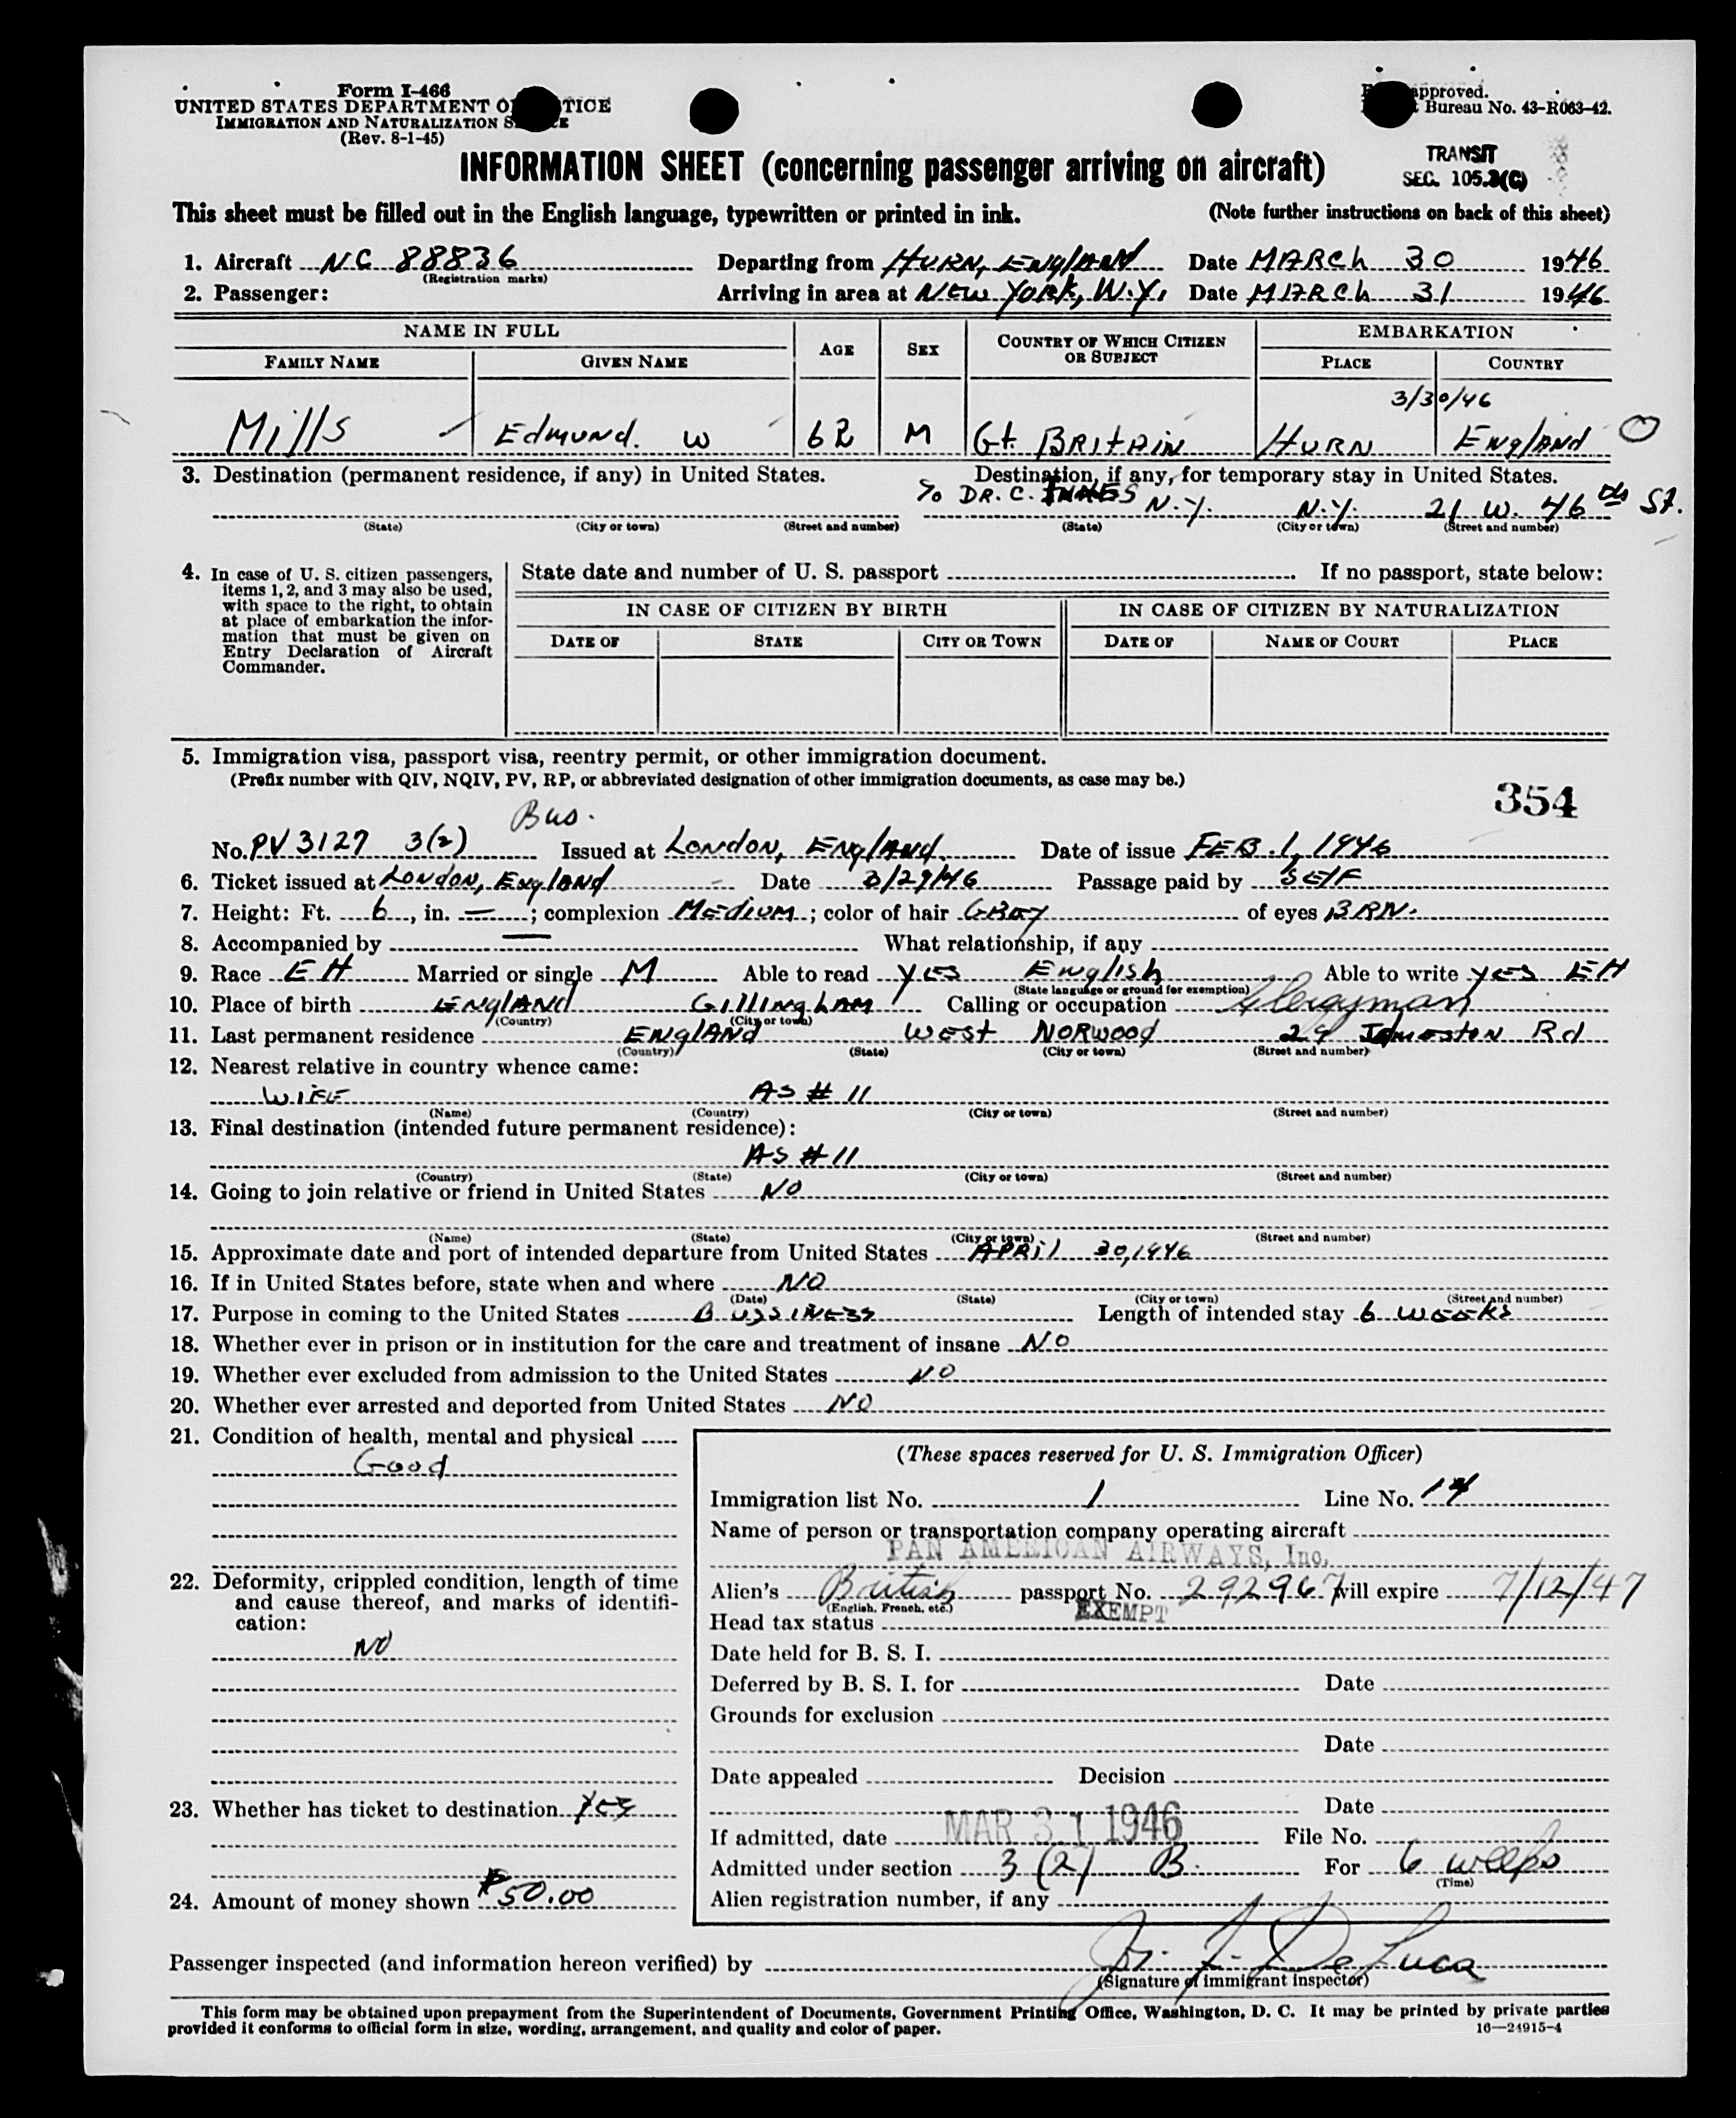 Form I-466
UNITED STATES DEPARTMENT OF JUSTICE
IMMIGRATION AND NATURALIZATION SERVICE
(Rev. 8-1-45)
approved.
Bureau No. 43-R063-42.
INFORMATION SHEET (concerning passenger arriving on aircraft)
TRANSIT
SEC. 105.3(C)
This sheet must be filled out in the English language, typewritten or printed in ink. (Note further instructions on back of this sheet)
1. Aircraft NC 88836 Departing from HURN, ENglAND Date MARCh 30 1946
(Registration marks)
2. Passenger: Arriving in area at NEW YORK, N.Y. Date MARCh 31 1946
NAME IN FULL AGE SEX COUNTRY OF WHICH CITIZEN OR SUBJECT EMBARKATION
FAMILY NAME GIVEN NAME PLACE COUNTRY
3/30/46
Mills Edmund. W 62 M Gt. BRITAIN HURN ENglAND O
3. Destination (permanent residence, if any) in United States. Destination, if any, for temporary stay in United States.
% DR. C. INNES N.Y. N.Y. 21 W. 46 th St.
(State) (City or town) (Street and number) (State) (City or town) (Street and number)
4. In case of U. S. citizen passengers, items 1, 2, and 3 may also be used, with space to the right, to obtain at place of embarkation the information that must be given on Entry Declaration of Aircraft Commander.
State date and number of U. S. passport If no passport, state below:
IN CASE OF CITIZEN BY BIRTH IN CASE OF CITIZEN BY NATURALIZATION
DATE OF STATE CITY OR TOWN DATE OF NAME OF COURT PLACE
5. Immigration visa, passport visa, reentry permit, or other immigration document.
(Prefix number with QIV, NQIV, PV, RP, or abbreviated designation of other immigration documents, as case may be.)
354
Bus.
No. PV 3127 3(2) Issued at LONDON, ENglAND. Date of issue FEB. 1, 1946
6. Ticket issued at LONDON, ENglAND Date 3/29/46 Passage paid by SElF
7. Height: Ft. 6, in. —; complexion MEDIUM; color of hair GREY of eyes BRN.
8. Accompanied by — What relationship, if any
9. Race EH Married or single M Able to read YES ENglish Able to write YES EH
(State language or ground for exemption)
10. Place of birth ENglAND GIllINghAM Calling or occupation Clergyman
(Country) (City or town)
11. Last permanent residence ENglAND WEST NORWOOD 29 JAMESTON Rd
(Country) (State) (City or town) (Street and number)
12. Nearest relative in country whence came:
WIFE AS # 11
(Name) (Country) (City or town) (Street and number)
13. Final destination (intended future permanent residence):
AS # 11
(Country) (State) (City or town) (Street and number)
14. Going to join relative or friend in United States NO
(Name) (State) (City or town) (Street and number)
15. Approximate date and port of intended departure from United States APRIl 30, 1946
16. If in United States before, state when and where NO
(Date) (State) (City or town) (Street and number)
17. Purpose in coming to the United States BUSSINESS Length of intended stay 6 WEEKS
18. Whether ever in prison or in institution for the care and treatment of insane NO
19. Whether ever excluded from admission to the United States NO
20. Whether ever arrested and deported from United States NO
21. Condition of health, mental and physical
Good
22. Deformity, crippled condition, length of time and cause thereof, and marks of identification:
NO
23. Whether has ticket to destination YES
24. Amount of money shown $50.00
(These spaces reserved for U. S. Immigration Officer)
Immigration list No. 1 Line No. 14
Name of person or transportation company operating aircraft
PAN AMERICAN AIRWAYS, Inc.
Alien's British passport No. 292967 will expire 7/12/47
(English, French, etc.)
Head tax status EXEMPT
Date held for B. S. I.
Deferred by B. S. I. for Date
Grounds for exclusion
Date
Date appealed Decision
Date
If admitted, date MAR 31 1946 File No.
Admitted under section 3 (2) B. For 6 weeks
(Time)
Alien registration number, if any
Passenger inspected (and information hereon verified) by De Luca
(Signature of immigrant inspector)
This form may be obtained upon prepayment from the Superintendent of Documents, Government Printing Office, Washington, D. C. It may be printed by private parties
provided it conforms to official form in size, wording, arrangement, and quality and color of paper.
16—24915-4